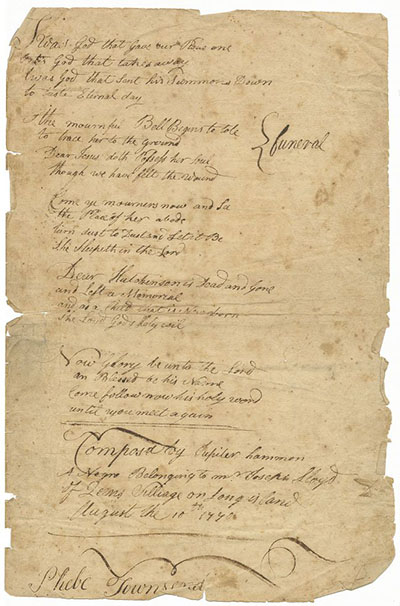 Twas God that Gave our Pious one
And God that takes away
Twas God that Sent his Summons Down
to Eternal day
the mournful Bell Begins to tole
to trace her to the Ground
Dear Jesus doth Possess her Soul
though we have felt the wound
funeral
Come ye mourners now and See
the Place of her abode
turn dust to Dust and let it Be
She Sleepeth in the Lord
Dear Hutchinson is Dead and Gone
and left a Memorial
and as a Child that is Newborn
She Lov'd God's holy
Now Glory be unto the Lord
an Blessed be his Name
Come follow now his holy word
until you meet again
Composd by Jupiter hammon
A Negro Belonging to mr Joseph Lloyd
of Queens Villiage on Long Island
August the 10th 1770
Phebe Townsend